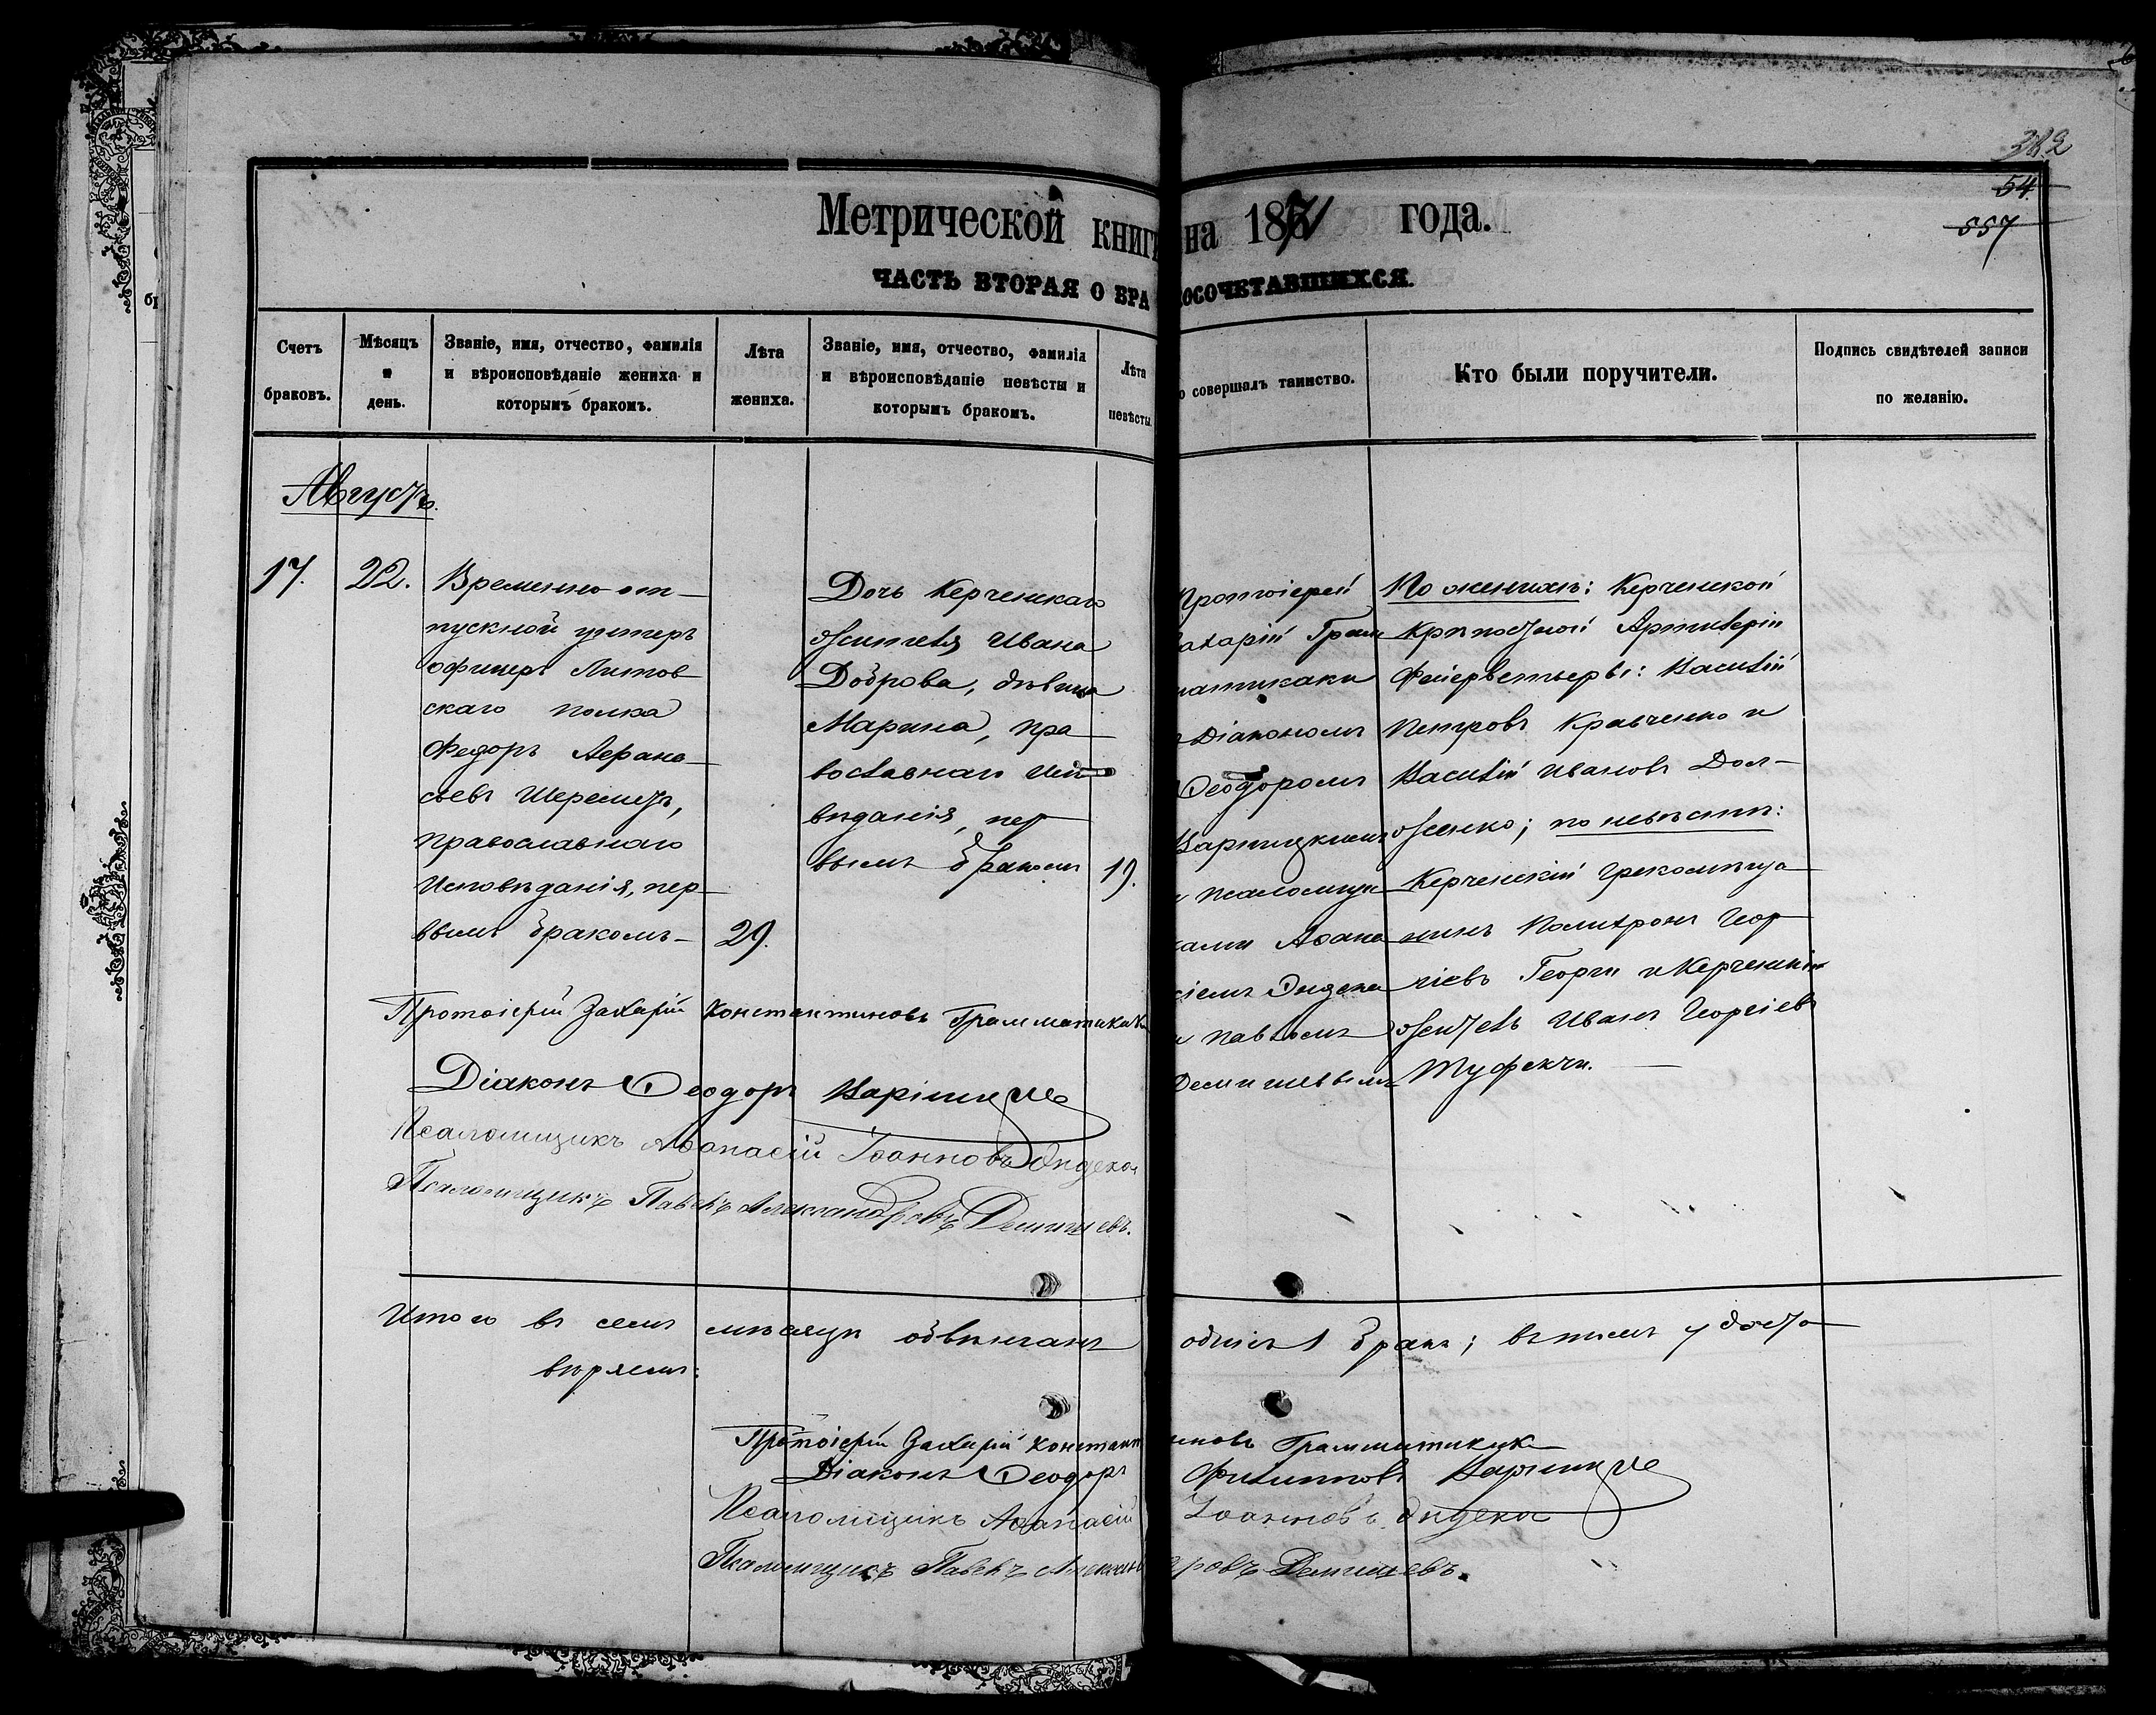 382
54
557
Метрической книги на 1871 года.
ЧАСТЬ ВТОРАЯ О БРАКОСОЧЕТАВШИХСЯ.
Счетъ браковъ.
Мѣсяцъ и день.
Званіе, имя, отчество, фамилія и вѣроисповѣданіе жениха и которымъ бракомъ.
Лѣта жениха.
Званіе, имя, отчество, фамилія и вѣроисповѣданіе невѣсты и которымъ бракомъ.
Лѣта невѣсты.
о совершалъ таинство.
Кто были поручители.
Подпись свидѣтелей записи по желанію.
Августъ.
17.
22.
Временно от-
пускной унтеръ
офицеръ Литов
скаго полка
Федоръ Аѳана-
сьевъ Шереметъ,
православнаго
исповѣданія, пер-
вымъ бракомъ-
29.
Дочь Керченскаго
жителя Ивана
Доброва, дѣвица
Марина, пра-
вославнаго испо-
вѣданія, пер-
вымъ бракомъ
19.
Протоіерей
Захарій Грам
матикаки
Діакономъ
Ѳеодоромъ
Варницкимъ
и псаломщи-
ками Аѳана
сіемъ Эндека
и Павломъ
Демишевымъ
По женихѣ: Керченской
Крѣпостной Артилеріи
Фейерверкеры: Василій
Петровъ Кравченко и
Василій Ивановъ Дол-
женко; по невѣстѣ:
Керченскій грекомѣща
нинъ Полихронъ Геор
гіевъ Георги и Керченскій
житель Иванъ Георгіевъ
Туфекчи.
Протоіерей Захарій Константиновъ Грамматикаки
Діаконъ Ѳеодоръ Варницкій
Псаломщикъ Аѳанасій Іоанновъ Эндека
Псаломщикъ Павелъ Александровъ Демишевъ.
Итого въ семъ мѣсяцѣ обвѣнчанъ одинъ 1 бракъ; въ томъ удосто
вѣряемъ:
Протоіерей Захарій Константиновъ Грамматикаки
Діаконъ Ѳеодоръ Филипповъ Варницкій
Псаломщикъ Аѳанасій Іоанновъ Эндека
Псаломщикъ Павелъ Александровъ Демишевъ.